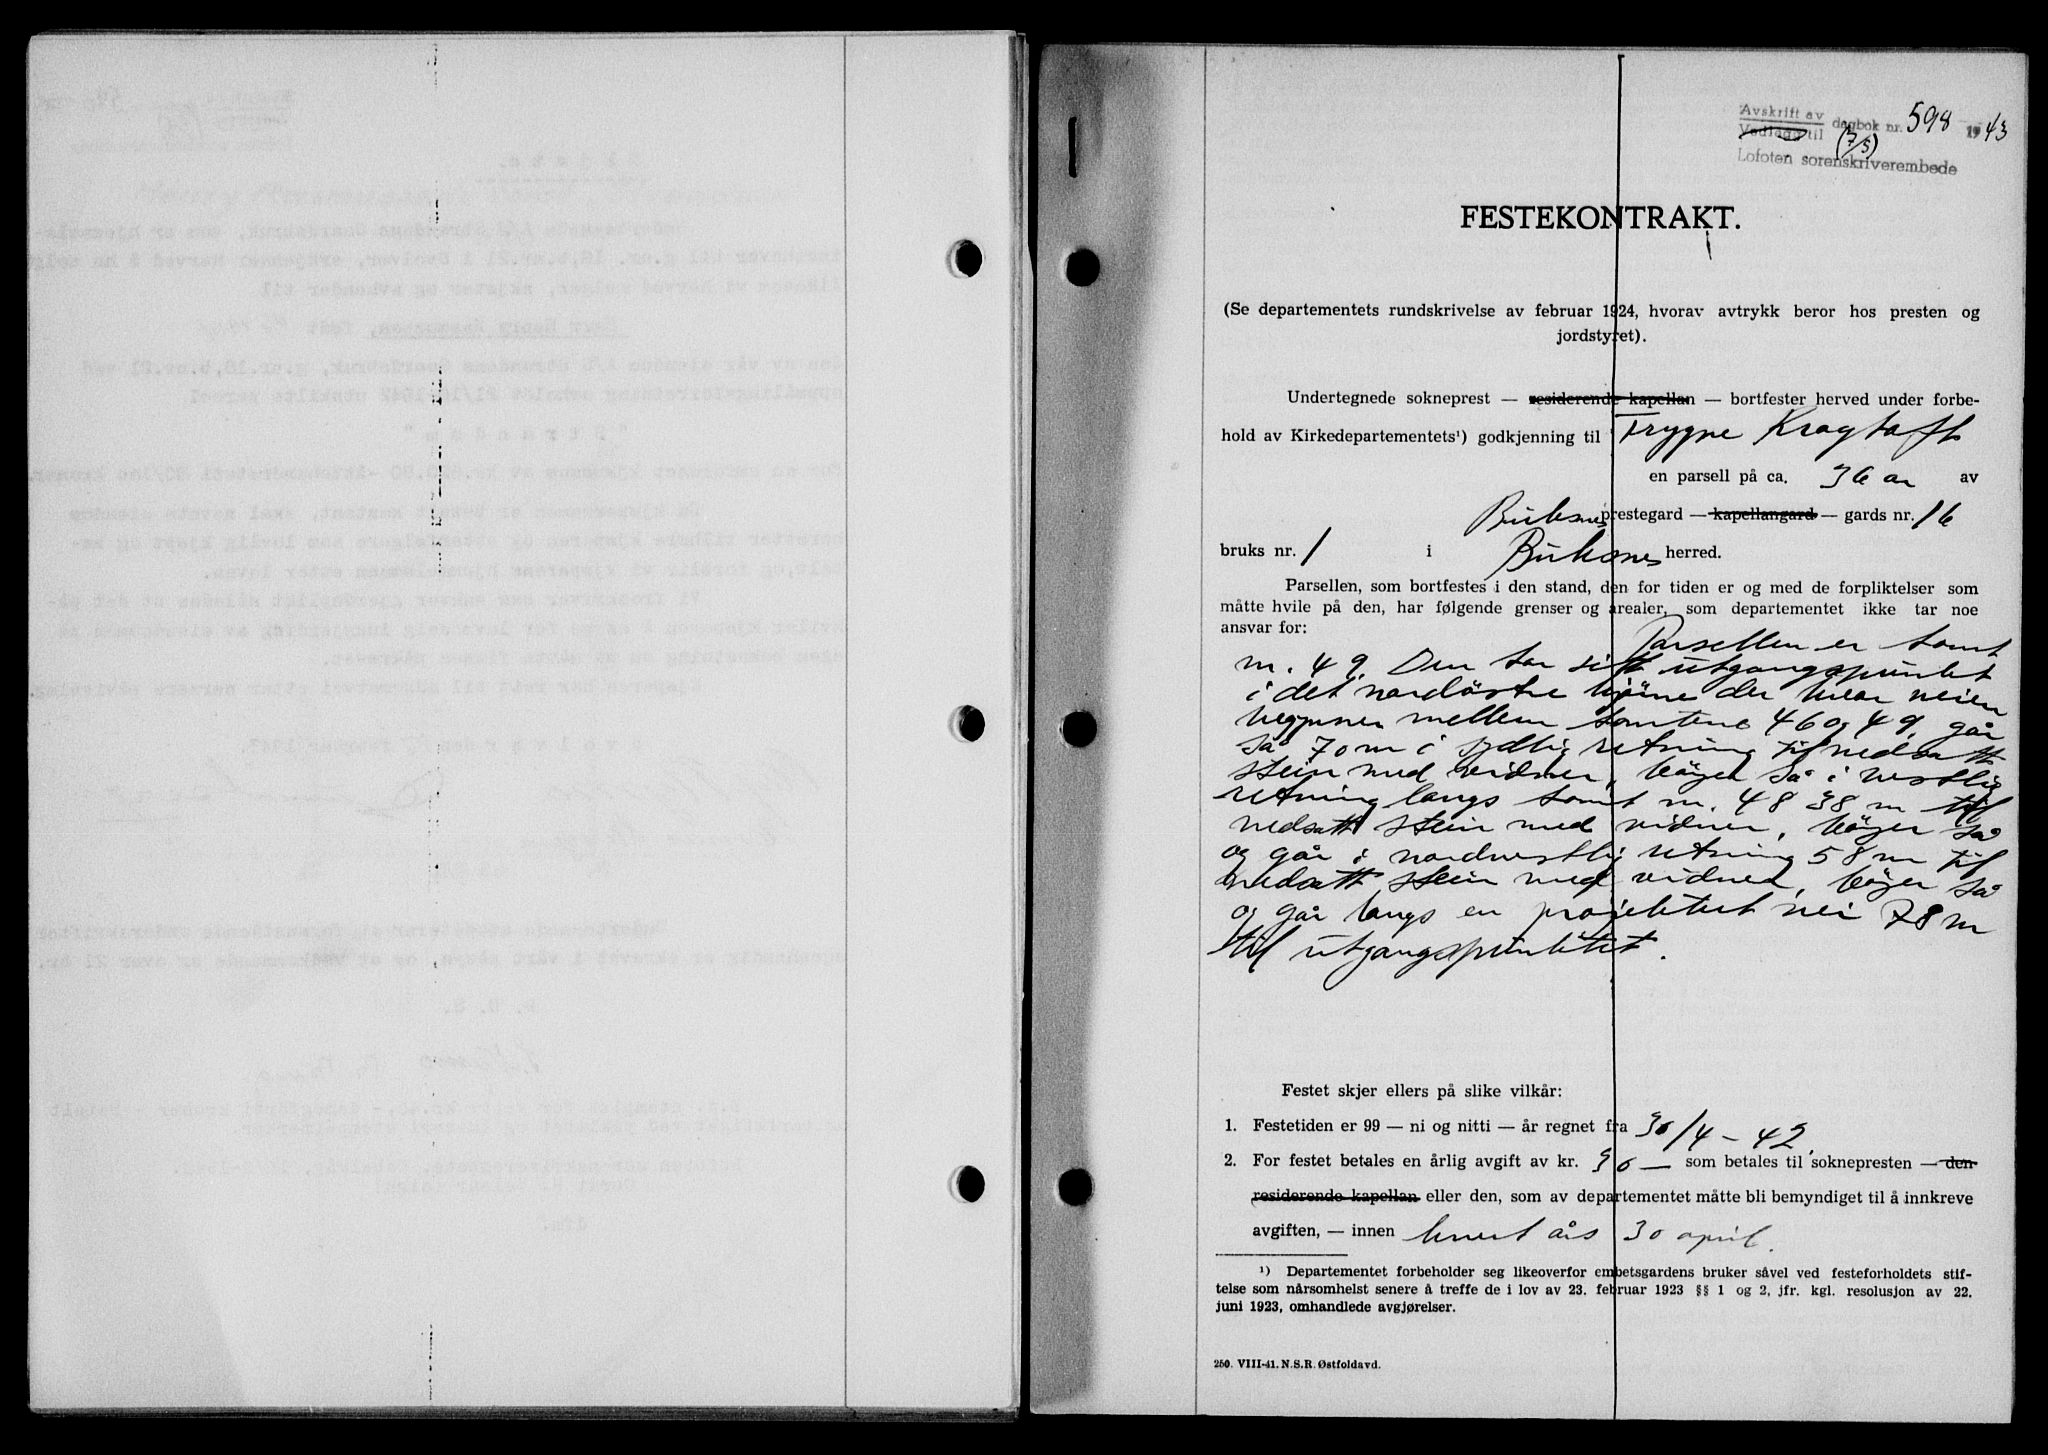 Avskrift av
Vedlegg til dagbok nr. 598 1943
(7/5)
Lofoten sorenskriverembede
FESTEKONTRAKT.
(Se departementets rundskrivelse av februar 1924, hvorav avtrykk beror hos presten og
jordstyret).
Undertegnede sokneprest — residerende kapellan — bortfester herved under forbe-
hold av Kirkedepartementets¹) godkjenning til Trygve Kragtoft
en parsell på ca. 36 ar av
Buksnes prestegard — kapellangard — gards nr. 16
bruks nr. 1 i Buksnes herred.
Parsellen, som bortfestes i den stand, den for tiden er og med de forpliktelser som
måtte hvile på den, har følgende grenser og arealer, som departementet ikke tar noe
ansvar for:
Parsellen er tomt
nr. 49. Den tar sitt utgangspunkt
i det nordöstre hjörne der hvor veien
begynner mellem tomtene 46 og 49, går
så 70 m i sydlig retning til nedsatt
stein med vidner, böyer så i vestlig
retning langs tomt nr. 48 38 m til
nedsatt stein med vidner, böyer så
og går i nordvestlig retning 58 m til
nedsatt stein med vidner, böyer så
og går langs en projektert vei 78 m
til utgangspunktet.
Festet skjer ellers på slike vilkår:
1. Festetiden er 99 — ni og nitti — år regnet fra 30/4 - 42.
2. For festet betales en årlig avgift av kr. 36 — som betales til soknepresten — den
residerende kapellan eller den, som av departementet måtte bli bemyndiget til å innkreve
avgiften, — innen hvert års 30 april.
¹) Departementet forbeholder seg likeoverfor embetsgardens bruker såvel ved festeforholdets stif-
telse som nårsomhelst senere å treffe de i lov av 23. februar 1923 §§ 1 og 2, jfr. kgl. resolusjon av 22.
juni 1923, omhandlede avgjørelser.
250. VIII-41. N.S.R. Østfoldavd.